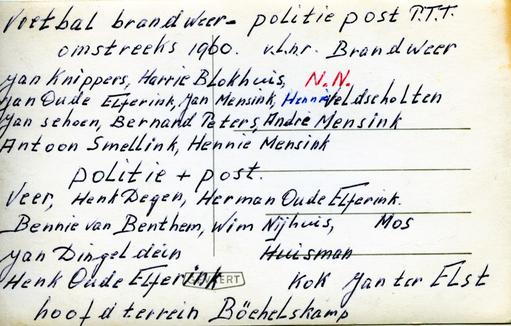 Voetbal brandweer - politie post P.T.T.
omstreeks 1960. v.l.n.r. Brandweer
Jan Knippers, Harrie Blokhuis, N.N.
Jan Oude Elferink, Jan Mensink, Hennie Veldscholten
Jan schoen, Bernard Peters, André Mensink
Antoon Smellink, Hennie Mensink
politie + post.
Veer, Henk Degen, Herman Oude Elferink.
Bennie van Benthem, Wim Nijhuis, Mos
Jan Dingeldein Huisman
Henk Oude Elferink Kok Jan ter Elst
hoofdterrein Böehelskamp